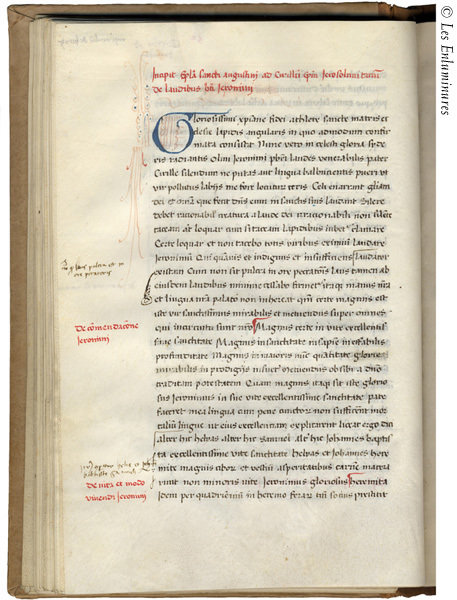 Incipit epla sancti augustini ad Cirillu epm Jerosolimitanu
de laudibus bti Jeronimi
Gloriosissimi xpiane fidei athlete sancte matris et
clesie lapidis angularis in quo admodum confir
mata consistit Nunc vero in celesti gloria syde
ris radiantis olim Jeronimi pbri laudes venerabilis pater
Cirille silendum me putas aut lingua balbucientis pueri ut
vir pollutus labijs me fore locuturum Celi enarrant gliam
dei et omnia que fecit dns cuncti in sanctis suis laudant Silere
debet rationabilis creatura a laude dei irrationabili non silente
taceam aut loquar cum si taceam lapidibus iubet clamare
Certe loquar et non tacebo totis viribus eximium laudare
Jeronimum Qui quamvis et indignus et insufficiens laudator
existam Cum non sit pulcra in ore peccatoris laus tamen ab
eiusdem laudibus minime cessabo firmetur itaqz manus nra
et lingua nra palato non inhereat qm certe magnus est
iste vir sanctissimus mirabilis et metuendus super omnes
qui in circuitu sunt nro Magnus certe in vite excellentissi
me sanctitate Magnus in sanctitate in sapientie ineffabilis
profunditate Magnus in maioris nunc quantitate glorie
mirabilis in prodigijs insuetis Metuendus ob sibi a dno
traditam potestatem Quam magnus itaqz sit iste glorio
sus Jeronimus in sue vite excellentissime sanctitate pate
faceret mea lingua cum pene cunctorum non sufficerent mor
talium lingue ut eius excellentiam explicarent liceat ergo dici
alter hic helias alter hic samuel alt hic Johannes baptis
ta excellentissime vite sanctitate helias et Johannes here
mite magnis cibor et vestium asperitatibus carne macera
runt non minoris vite Jeronimus gloriosus heremita
Idem per quadriennium in heremo ferarum tm socius perstitit
De comendacone
Jeronimi
De vita et modo
vivendi Jeronimi
© Les Enluminures